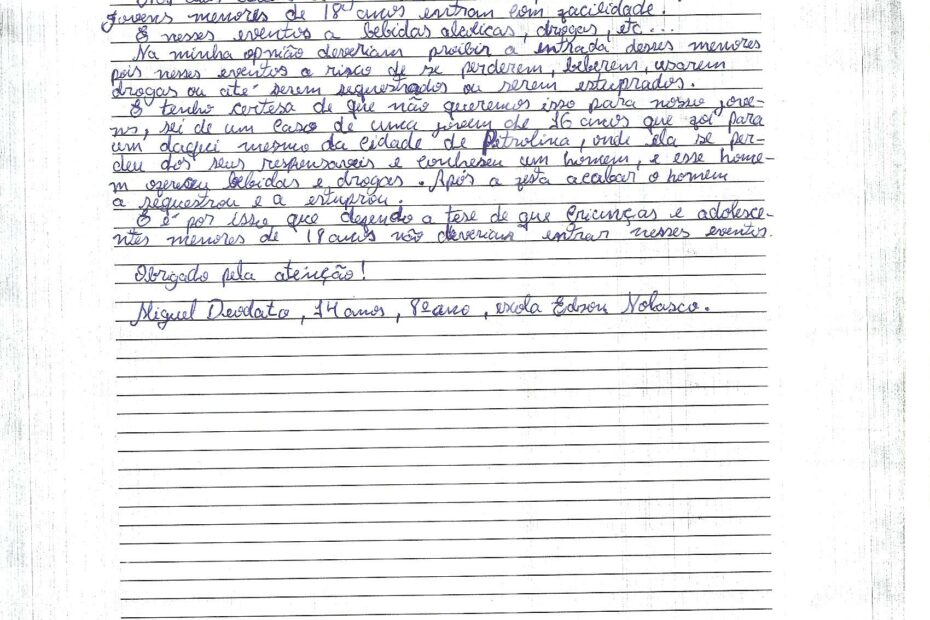 jovens menores de 18 anos entram com facilidade.
E nesses eventos a bebidas alcolicas, drogas, etc...
Na minha opnião deveriam proibir a entrada desses menores
pois nesses eventos a risco de se perderem, beberem, usarem
drogas ou até serem sequestrados ou serem estuprados.
E tenho certesa de que não queremos isso para nosso jove-
ns, sei de um caso de uma jovem de 16 anos que foi para
um daqui mesmo da cidade de Petrolina, onde ela se per-
deu dos seus responsaveis e conheseu um homem, e esse home-
m ofereseu bebidas e drogas. Após a festa acabar o homem
a sequestrou e a estuprou.
E é por isso que defendo a tese de que crianças e adolesce-
ntes menores de 18 anos não deveriam entrar nesses eventos.
Obrigado pela atenção!
Miguel Deodato, 14 anos, 8º ano, escola Edson Nolasco.